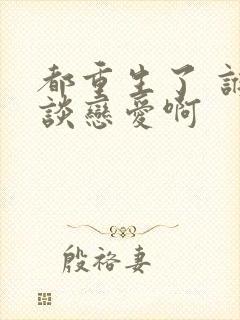 都重生了
談戀愛啊
殷祿妻